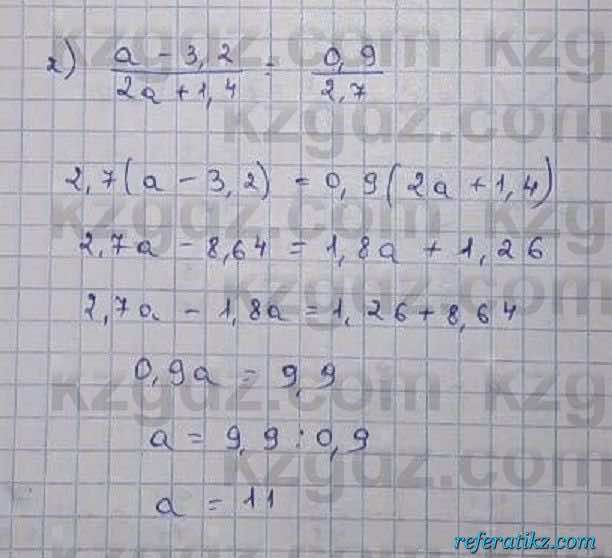 2) a - 3,2 / 2a + 1,4 = 0,9 / 2,7
2,7(a - 3,2) = 0,9(2a + 1,4)
2,7a - 8,64 = 1,8a + 1,26
2,7a - 1,8a = 1,26 + 8,64
0,9a = 9,9
a = 9,9 : 0,9
a = 11
kzgdz.com
referatikz.com